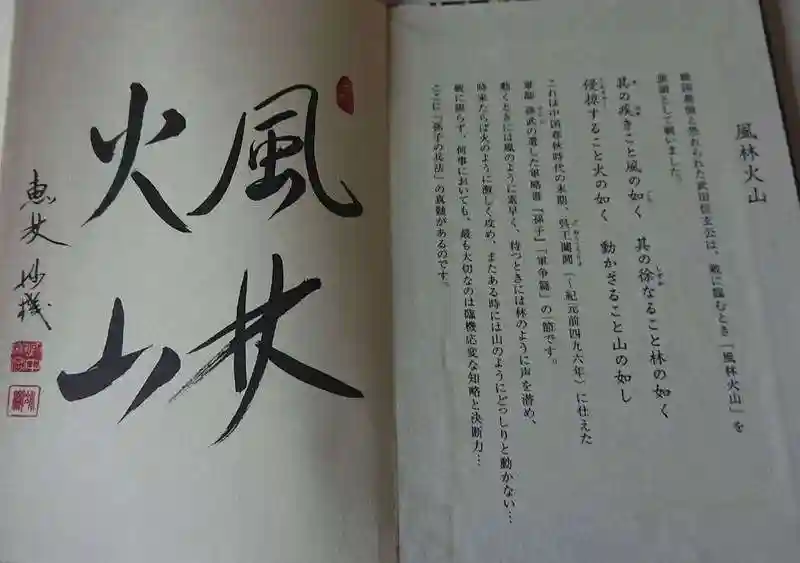 風林火山
戦国最強と恐れられた武田信玄公は、敵に臨むとき「風林火山」を
旗頭として戦いました。
其の疾きこと風の如く 其の徐なること林の如く
侵掠すること火の如く 動かざること山の如し
これは中国春秋時代の末期、呉王闔閭(〜紀元前四九六年)に仕えた
軍師 孫武の遺した軍略書『孫子』「軍争篇」の一節です。
動くときには風のように素早く、待つときには林のように声を潜め、
時来たらば火のように激しく攻め、またある時には山のようにどっしりと動かない…
戦に限らず、何事においても、最も大切なのは臨機応変な知略と決断力…
ここに『孫子の兵法』の真髄があるのです。
風林
火山
恵林 妙機